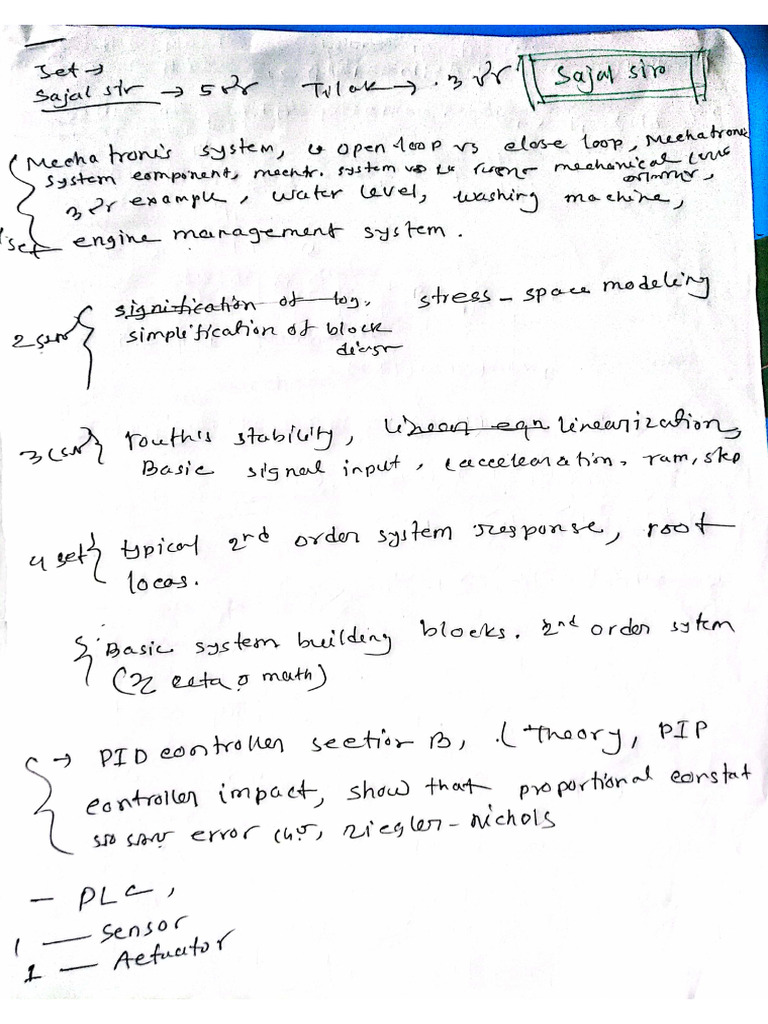 Set →
Sajal sir → 5 टा Tilak → 3 टा Sajal siro
Mechatronis system, open loop vs close loop, Mechatronic
system component, mechtr. system vs mechanical
example, water level, washing machine,
1 set engine management system.
signification of log, stress - space modeling
2 simplification of block
routh's stability, linear eqn linearization,
3 Basic signal input, (acceleration, ram, step
4 set typical 2nd order system response, root
locas.
Basic system building blocks. 2nd order sytem
(zeta math)
→ PID controller section B, (Theory, PIP
controller impact, show that proportional constat
error ziegler - Nichols
— PLC,
1 — Sensor
1 — Aetuator